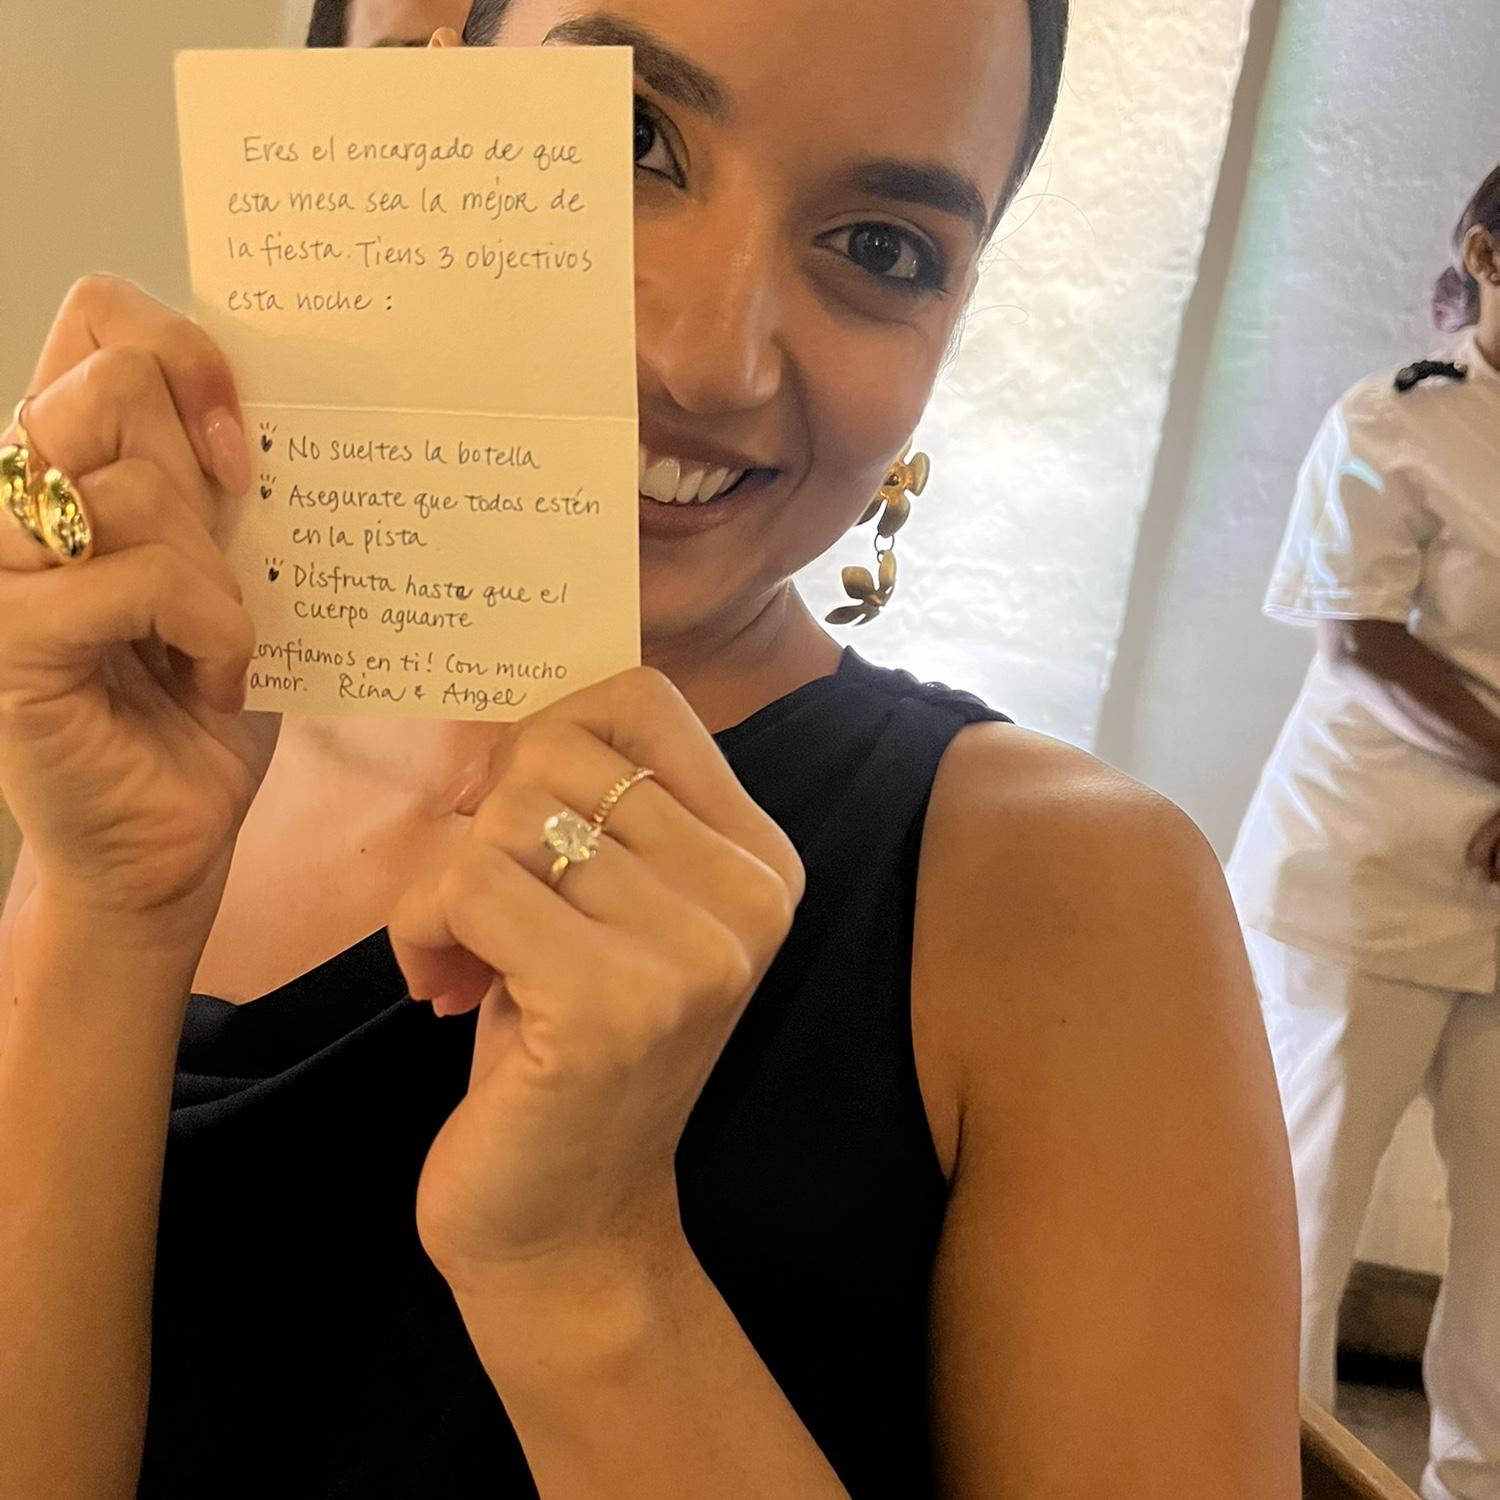 Eres el encargado de que
esta mesa sea la mejor de
la fiesta. Tiens 3 objectivos
esta noche :
No sueltes la botella
Asegurate que todos estén
en la pista
Disfruta hasta que el
cuerpo aguante
Confiamos en ti! Con mucho
amor. Rina & Angel